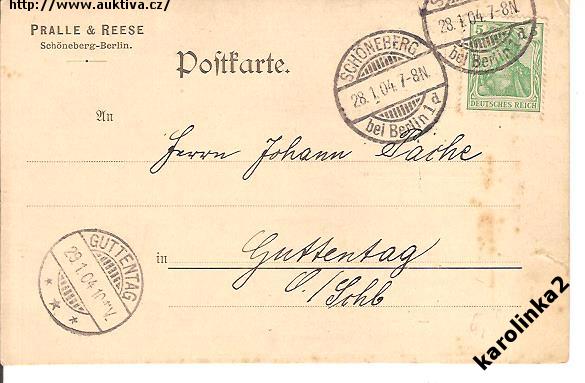 (http://www.auktiva.cz/)
PRALLE & REESE
Schöneberg-Berlin.
Postkarte.
SCHÖNEBERG
28.1.04.7-8N.
bei Berlin 1 d
28.1.04.7-8N.
bei Berlin 1 d
5
DEUTSCHES REICH
An
Herrn Johann Pache
in Guttentag
O./Schl
GUTTENTAG
29.1.04
karolinka2